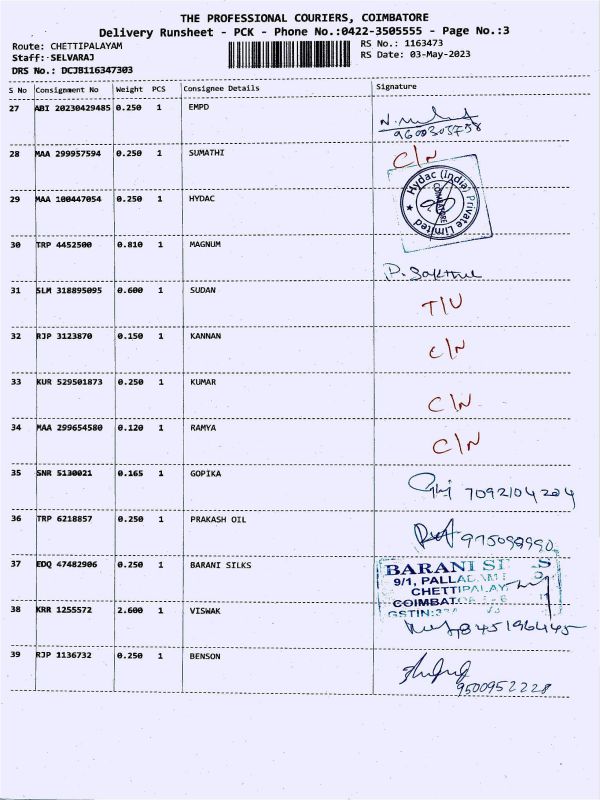 THE PROFESSIONAL COURIERS, COIMBATORE
Delivery Runsheet - PCK - Phone No.:0422-3505555 - Page No.:3
Route: CHETTIPALAYAM RS No.: 1163473
Staff: SELVARAJ RS Date: 03-May-2023
DRS No.: DCJB116347303
S No Consignment No Weight PCS Consignee Details Signature
27 ABI 20230429485 0.250 1 EMPD
9600305758
28 MAA 299957594 0.250 1 SUMATHI C/N
29 MAA 100447054 0.250 1 HYDAC Hydac (India) Private Limited COIMBATORE
30 TRP 4452500 0.810 1 MAGNUM
31 SLM 318895095 0.600 1 SUDAN T/U
32 RJP 3123870 0.150 1 KANNAN C/N
33 KUR 529501873 0.250 1 KUMAR C/N
34 MAA 299654580 0.120 1 RAMYA C/N
35 SNR 5130021 0.165 1 GOPIKA 7092104224
36 TRP 6218857 0.250 1 PRAKASH OIL
37 EDQ 47482906 0.250 1 BARANI SILKS BARANI
9/1,
CHETTIPALAY
COIMBATO
GSTIN:33
38 KRR 1255572 2.600 1 VISWAK
39 RJP 1136732 0.250 1 BENSON
9500952228